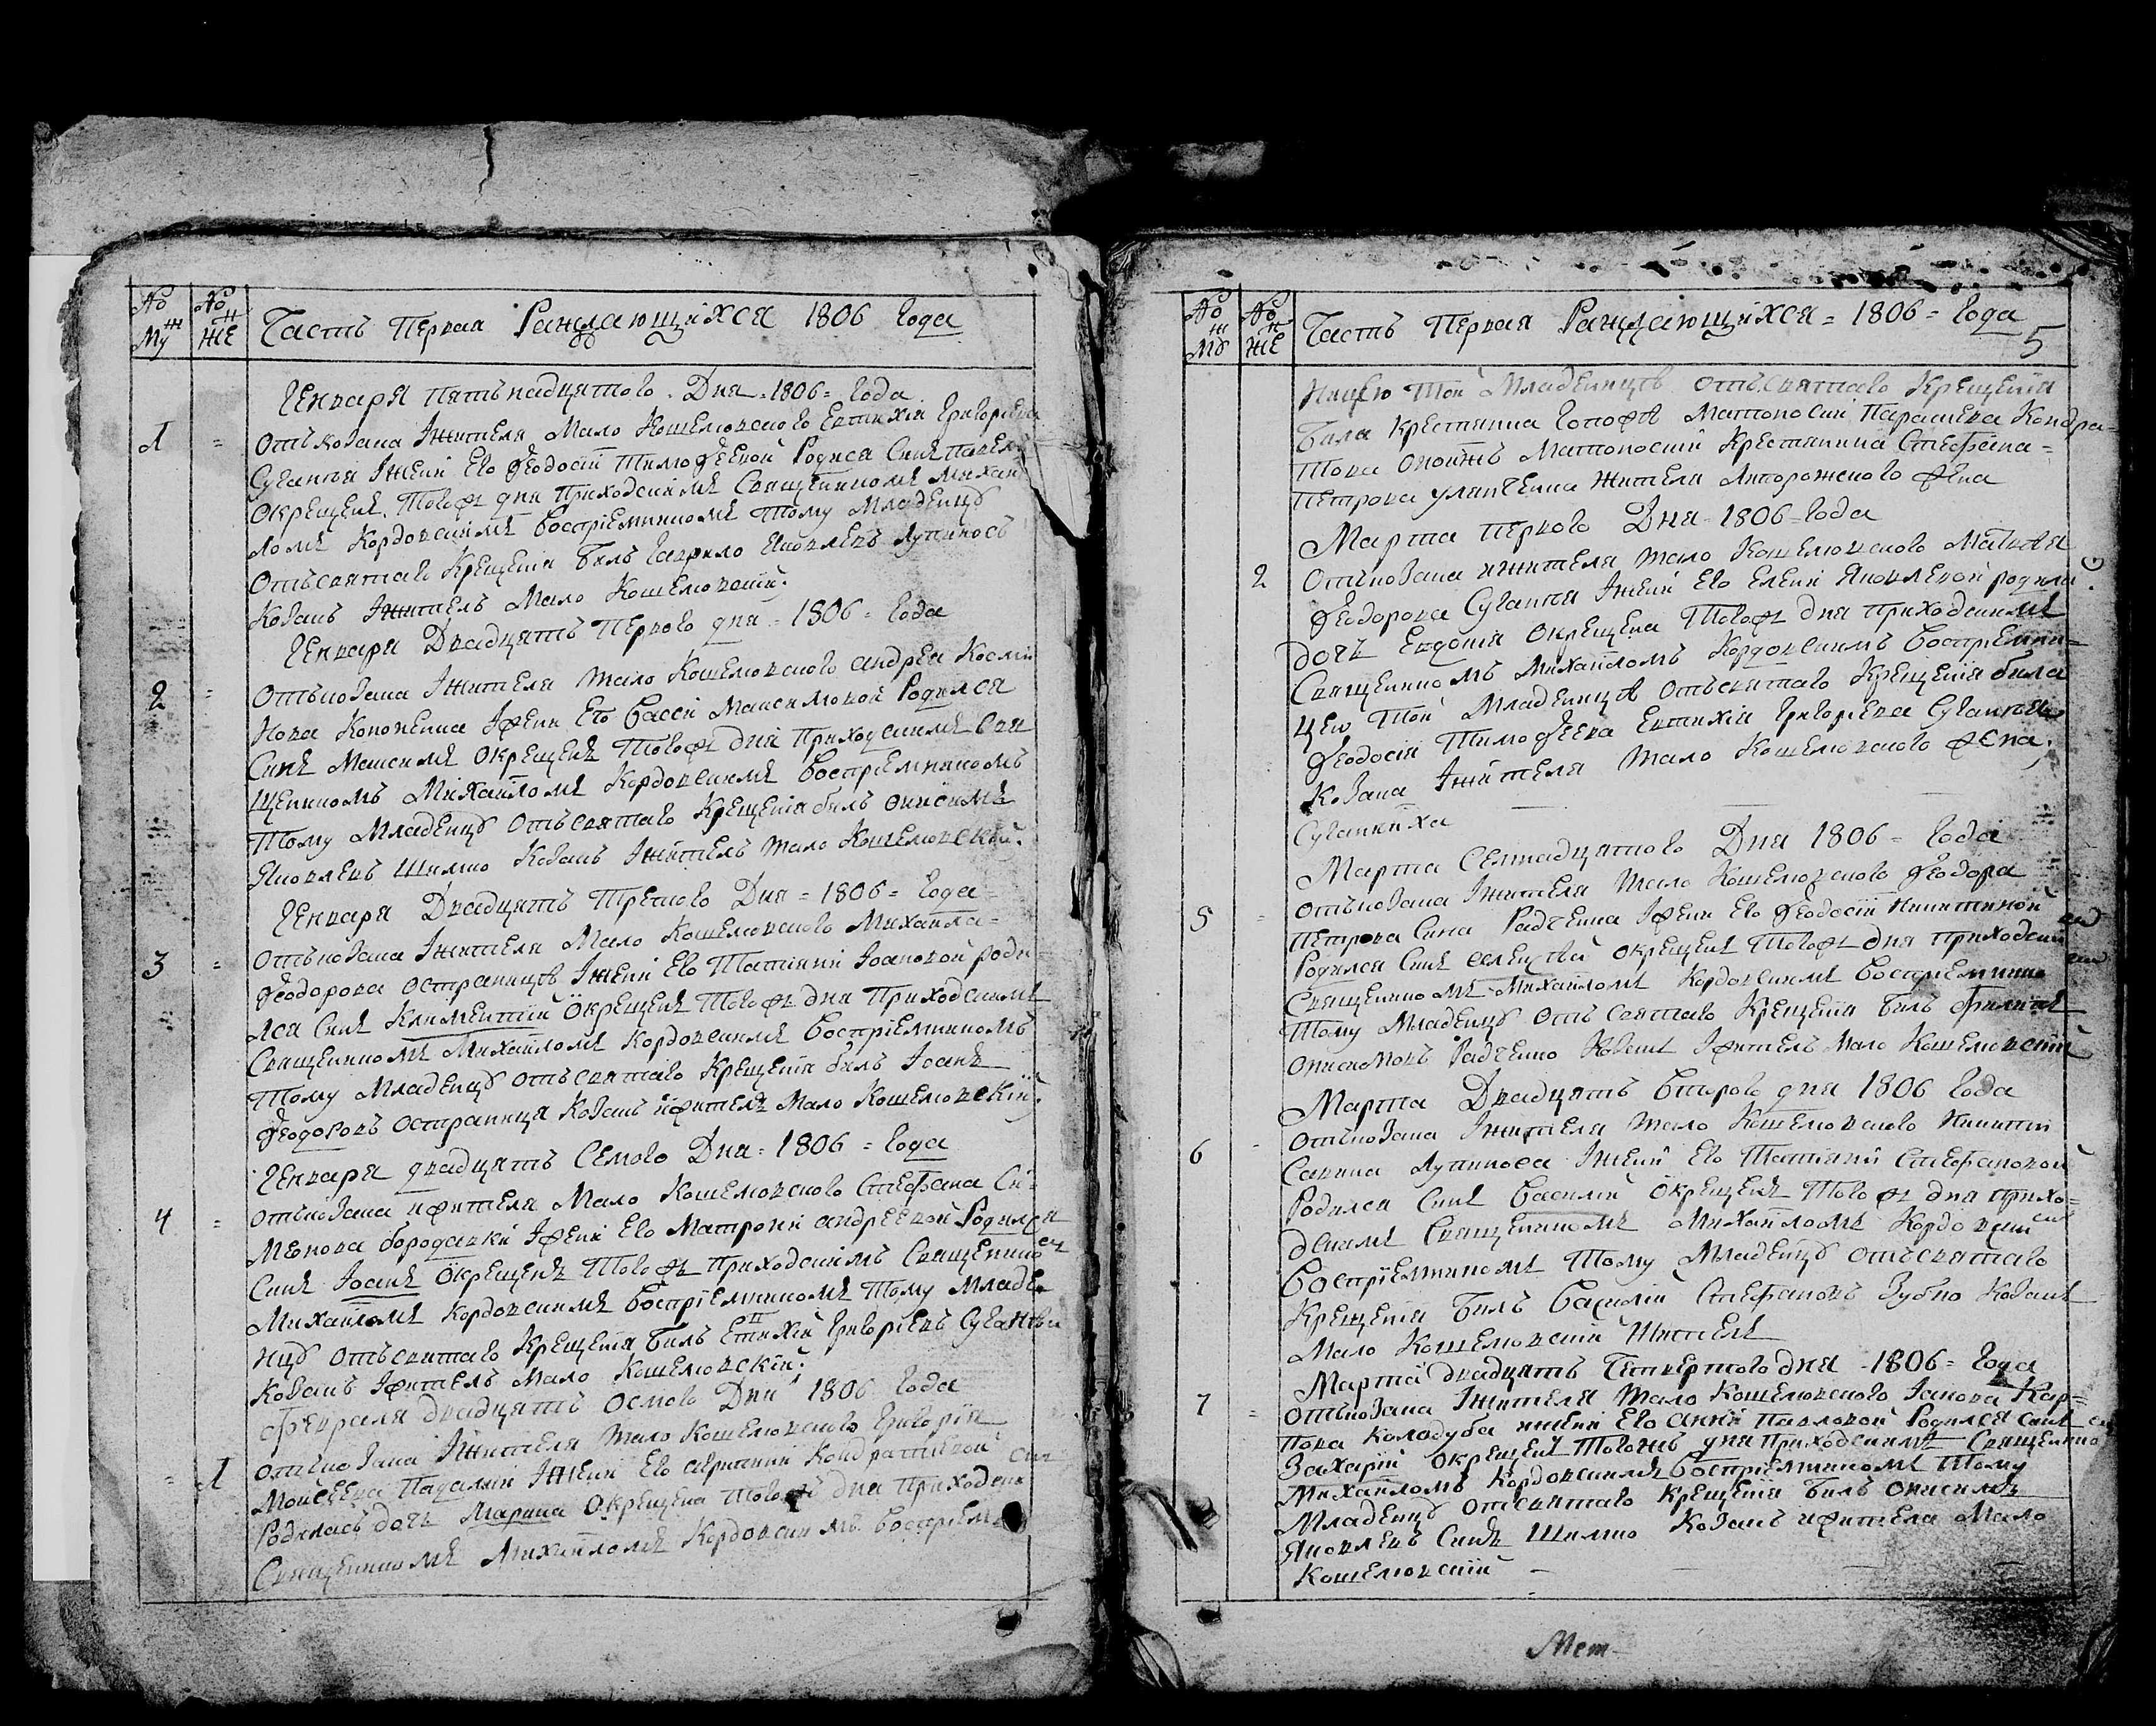 № Му
№ ЖЕ
Часть Первая Раждающихся 1806 Года
Генваря пятънадцятого Дня 1806 = Года
1 = Отъкозака Жителя Мало Кошелювского Евтихия Григориева
Суганяя Жени Его Феодосии Тимофеевой Родися Синъ Павелъ
Окрещенъ Тогофъ дня Приходскимъ Священикомъ Михаи
ломъ Кордовскимъ Восприемникомъ Тому Младенцу
Отъсвятаго Крещения билъ Гаврило Яковлевъ Лупиносъ
Козакъ Житель Мало Кошелювский
Генваря Двадцять Первого дня = 1806 = Года
2 = Отъкозака Жителя Мало Кошелювского андрея Косми
нова Кононенка Жени Его Васси Максимовой Родился
Синъ Максимъ Окрещенъ Тогофъ дня Приходскимъ Свя
щеникомъ Михайломъ Кордовскимъ Восприемникомъ
Тому Младенцу Отъсвятаго Крещения билъ Онисимъ
Яковлевъ Шимко Козакъ Житель Мало Кошелювский
Генваря Двадцять Третого Дня = 1806 = Года
3 = Отъкозака Жителя Мало Кошелювского Михаила
Феодорова Остраницѣ Жени Его Татияни Иоановой роди
лся Синъ Климентий Окрещенъ Тогофъ дня Приходскимъ
Священикомъ Михайломъ Кордовскимъ Восприемникомъ
Тому Младенцу отъсвятаго Крещения билъ Иоанъ
Феодоровъ Остраница Козакъ ифитель Мало Кошелювский
Генваря двадцять Семого Дня = 1806 = Года
4 = Отъкозака ифителя Мало Кошелювского Стефана Си
меонова бородавки Ифени Его Матрони андреевой Родился
Синъ Иоанъ Окрещенъ Тогофъ Приходскимъ Священико
Михайломъ Кордовскимъ Восприемникомъ Тому Младе
нцу отъсвятаго Крещения билъ Етихий Григориевъ
Козакъ Ифитель Мало Кошелювский
Февраля двадцять Осмого Дня 1806 Года
= 1 Отъкозака Жителя Мало Кошелювского Григория
Мойсеева Падалки Жени Его Кондратиевой
Родилась дочь Марина Окрещена дня Приходски
Священикомъ Михайломъ Кордовскимъ Восприем
№ Му
№ ЖЕ
Часть Первая Раждающихся = 1806 = Года
5
Ницею Той Младеницѣ отъсвятаго Крещения
била крестянка Параскева Кондра=
това Крестянина Стефана=
Петрова жителя
Марта первого Дня 1806 = Года
2 Отъкозака ижителя Мало Кошелювского Матвея
Феодорова Суганяя Жени Его Елени Яковлевой родила
дочъ Евдокия Окрещена Тогофъ дня приходскимъ
Священикомъ Михайломъ Кордовскимъ Восприемни=
цею Той Младеницѣ Отъсвятаго Крещения била
Феодосия Тимофеева Евтихия Григориева
Козака Жителя Мало Кошелювского фена
Марта Семнадцятого Дня 1806 = Года
5 = Отъкозака Жителя Мало Кошелювского Феодора
Петрова Сина Радченка Ифени Его Феодосии Никитиной
Родился Синъ окрещенъ Тогофъ дня приходски
Священикомъ Михайломъ Кордовскимъ Восприемнико
Тому Младенцу отъ святаго Крещения билъ Филипъ
Онисимовъ Радченко Козакъ Ифитель Мало Кошелювский
Марта Двадцять Второго дня 1806 Года
6 - Отъкозака Жителя Мало Кошелювского Никити
Савина Лупиноса Жени Его Татияни Стефановой
Родился Синъ Василий Окрещенъ Тогофъ дня прихо=
дскимъ Священикомъ Михайломъ Кордовским
Восприемникомъ Тому Младенцу отъсвятаго
Крещения билъ Василий Стефановъ Зубко Козакъ
Мало Кошелювский Житель
Марта двадцять Четвертого дня 1806 = Года
7 = Отъкозака Жителя Мало Кошелювского Кар=
пова Колодуба жени Его анни Павловой Родился синъ
Захарий Окрещенъ Тогожъ дня Приходскимъ Священико
Михайломъ Кордовскимъ Восприемникомъ Тому
Младенцу отсвятаго Крещения билъ Онисимъ
Яковлевъ Синъ Шимко Козакъ ифителя Мало
Кошелювский
Мет